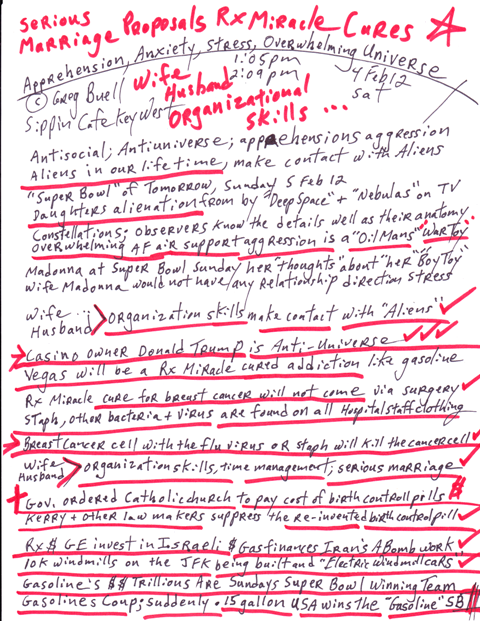 SERIOUS
MARRIAGE PROPOSALS RX MIRACLE CURES
APPREHENSION, ANXIETY, STRESS, OVERWHELMING UNIVERSE
© GREG BUELL
1:05pm
2:09pm
4 FEB 12
SAT
SIPPIN CAFE KEY WEST
WIFE
HUSBAND
ORGANIZATIONAL
SKILLS ...
ANTISOCIAL; ANTIUNIVERSE; APPREHENSIONS AGGRESSION
ALIENS IN OUR LIFE TIME, MAKE CONTACT WITH ALIENS
"SUPER BOWL" OF TOMORROW, SUNDAY 5 FEB 12
DAUGHTERS ALIENATION FROM BY "DEEP SPACE" + "NEBULAS" ON TV
CONSTELLATIONS; OBSERVERS KNOW THE DETAILS WELL AS THEIR ANATOMY
OVERWHELMING AF AIR SUPPORT AGGRESSION IS A "OIL MANS" WAR TOY
MADONNA AT SUPER BOWL SUNDAY HER "THOUGHTS" ABOUT "HER "BOY TOY"
WIFE MADONNA WOULD NOT HAVE ANY RELATIONSHIP DIRECTION STRESS
WIFE
HUSBAND > ORGANIZATION SKILLS MAKE CONTACT WITH "ALIENS"
CASINO OWNER DONALD TRUMP IS ANTI-UNIVERSE
VEGAS WILL BE A RX MIRACLE CURED ADDICTION LIKE GASOLINE
RX MIRACLE CURE FOR BREAST CANCER WILL NOT COME VIA SURGERY
STAPH, OTHER BACTERIA + VIRUS ARE FOUND ON ALL HOSPITAL STAFF CLOTHING
BREAST CANCER CELL WITH THE FLU VIRUS OR STAPH WILL KILL THE CANCER CELL
WIFE
HUSBAND > ORGANIZATION SKILLS, TIME MANAGEMENT; SERIOUS MARRIAGE
GOV. ORDERED CATHOLIC CHURCH TO PAY COST OF BIRTH CONTROL PILLS $
KERRY + OTHER LAW MAKERS SUPPRESS THE RE-INVENTED BIRTH CONTROL PILL
RX $ GE INVEST IN ISRAELI $ GAS FINANCES IRANS A BOMB WORK
10K WINDMILLS ON THE JFK BEING BUILT AND "ELECTRIC WINDMILL CARS"
GASOLINE'S $$ TRILLIONS ARE SUNDAYS SUPER BOWL WINNING TEAM
GASOLINES COUP; SUDDENLY . 15 GALLON USA WINS THE "GASOLINE" SB